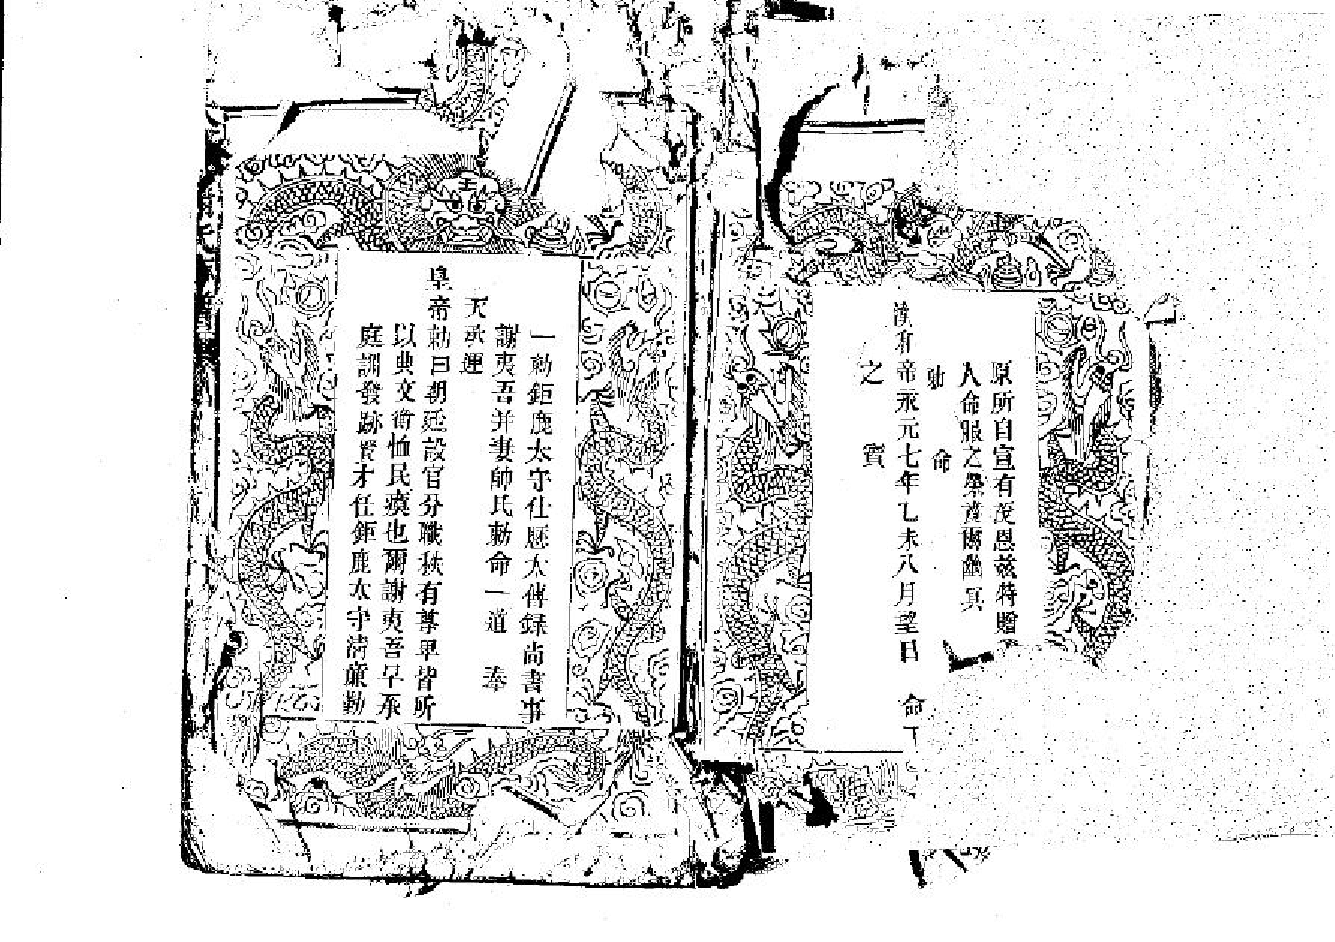 原所自宣有茂恩茲特贈
人命服之榮賁爾幽冥
勅命
漢和帝永元七年乙未八月望日 命下
之寶
一勅鉅鹿太守仕歷太傅錄尚書事
謝夷吾并妻帥氏勅命一道 奉
天承運
皇帝勅曰朝廷設官分職秩有尊卑皆所
以典文衡恤民瘼也爾謝夷吾早承
庭訓發跡賢才任鉅鹿太守清廉勤